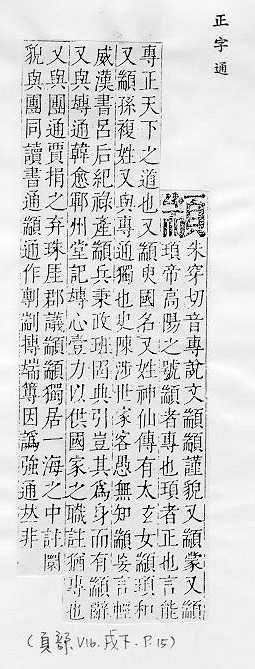 正字通
顓
朱穿切音專說文顓顓謹貌又顓蒙又顓
頊帝高陽之號顓者專也頊者正也言能
專正天下之道也又顓臾國名又姓神仙傳有太玄女顓頊和
又顓孫複姓又與專通獨也史陳涉世家客愚無知顓妄言輕
威漢書呂后紀祿產顓兵秉政班固典引豈其為身而有顓辭
又與竱通韓愈鄆州堂記竱心壹力以供國家之職註猶專也
又與團通賈捐之弃珠厓郡議顓顓獨居一海之中註圜
貌與團同讀書通顓通作剸剬摶端篿因譌強通𠀤非
(頁部.V16.戌下.P.15)